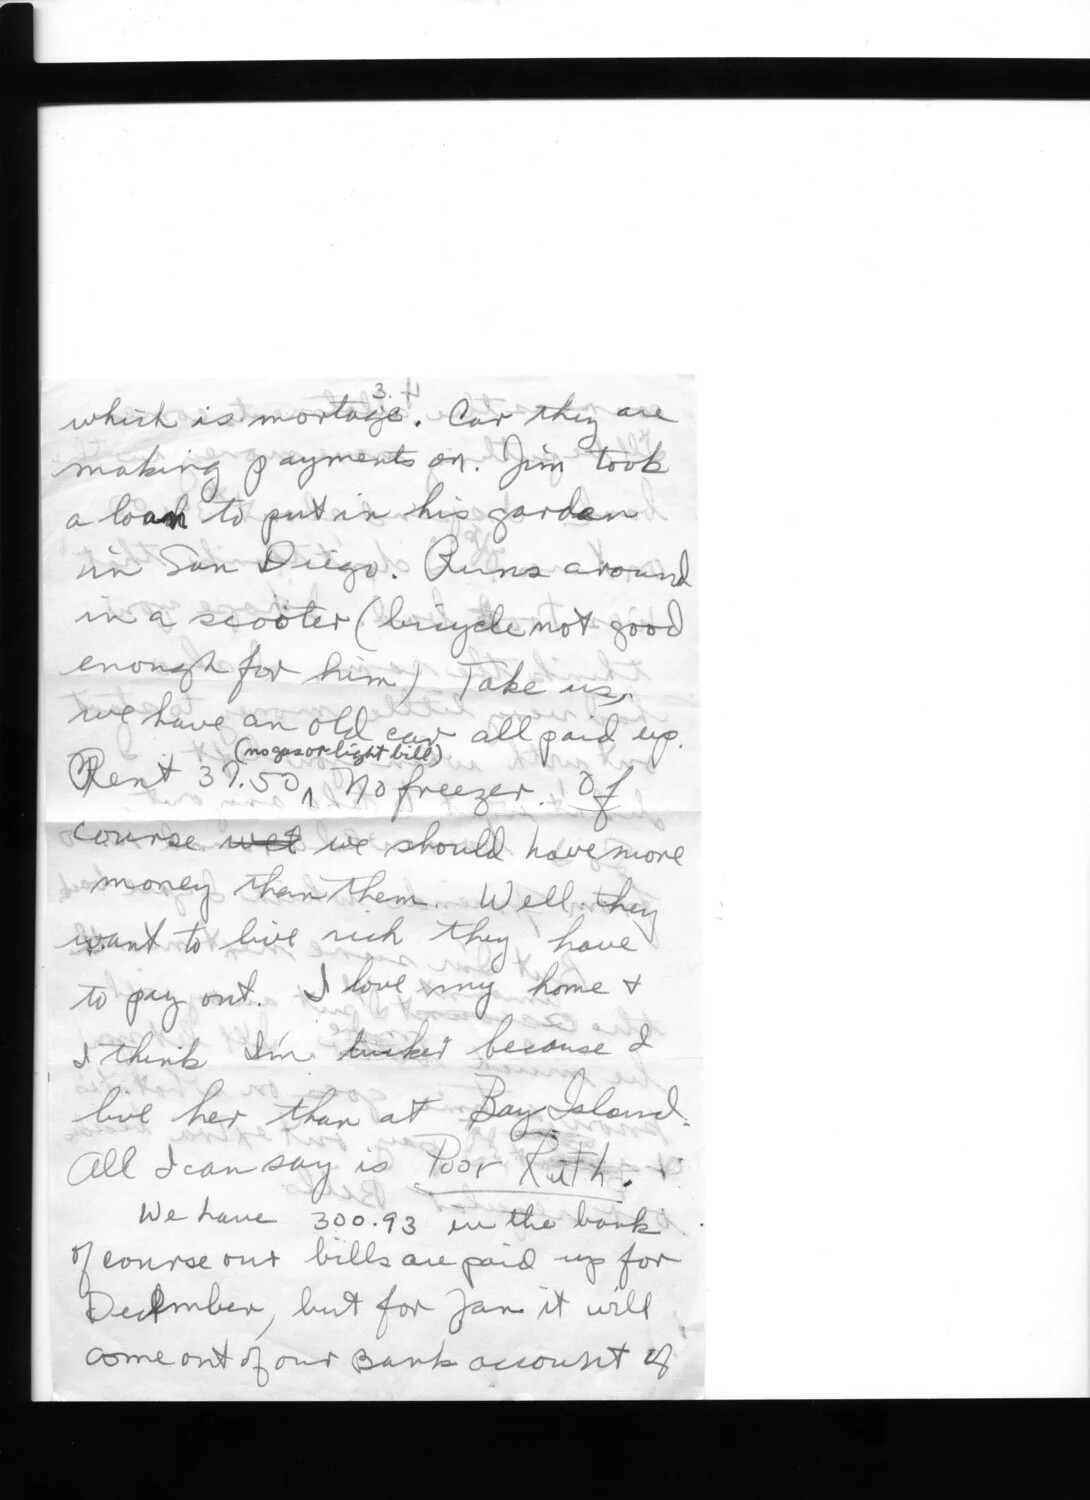 3.
which is mortage. Car they are
making payments on. Jim took
a loan to put in his garden
in San Diego. Runs around
in a scooter (bicycle not good
enough for him) Take us,
we have an old car all paid up.
(no gas or light bill)
Rent 37.50 ^ No freezer. Of
course we should have more
money than them. Well they
want to live rich they have
to pay out. I love my home +
I think I'm because I
live her than at Bay Island.
All I can say is Poor Ruth.
We have 300.93 in the bank
of course our bills are paid up for
December, but for Jan it will
come out of our Bank account if